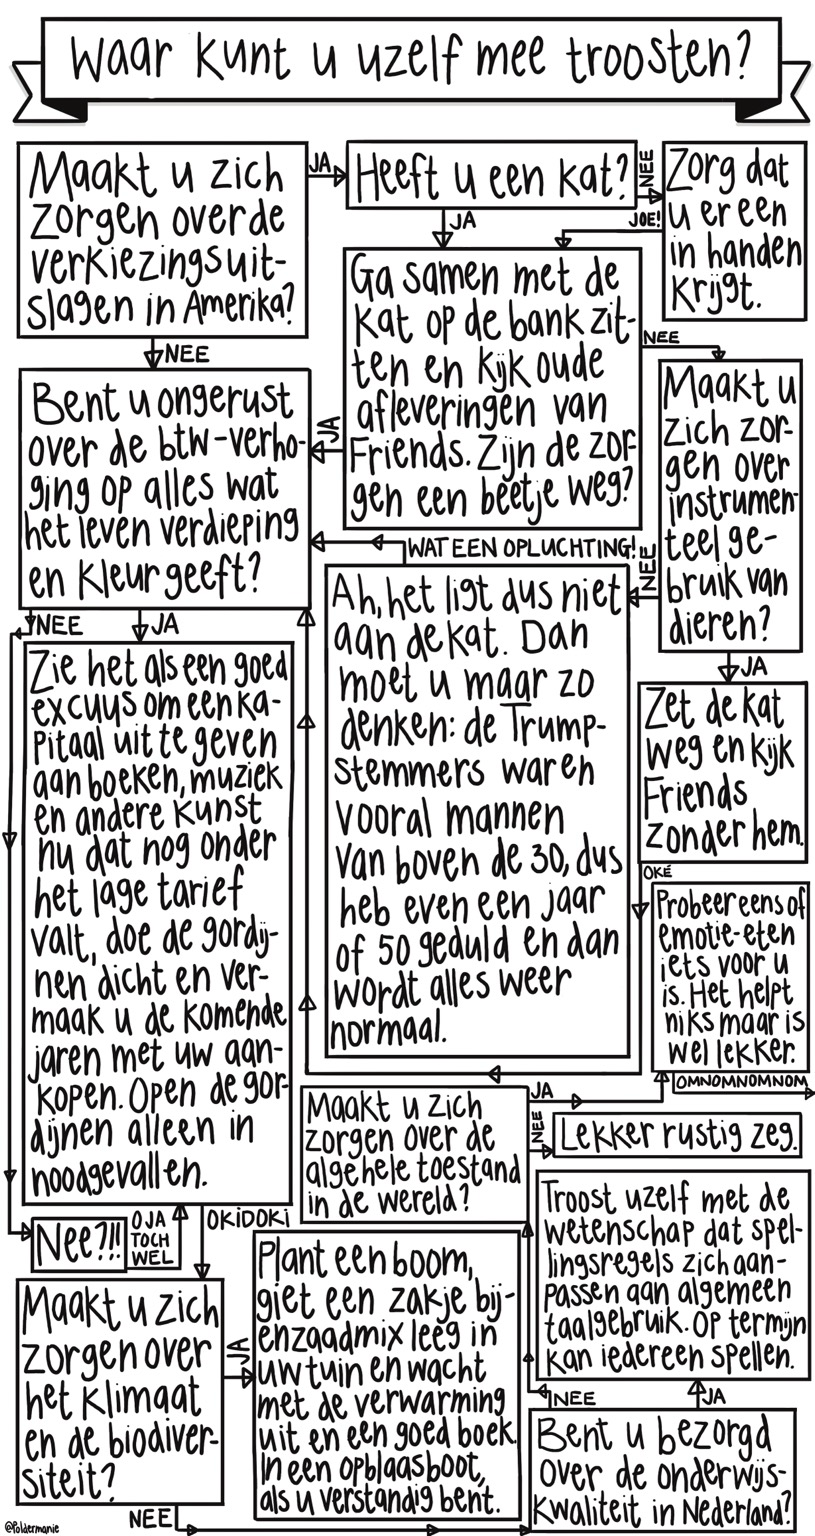 Waar kunt u uzelf mee troosten?
Maakt u zich
zorgen over de
verkiezingsuit-
slagen in Amerika?
JA
Heeft u een kat?
NEE
Zorg dat
u er een
in handen
krijgt.
JA
JOE!
Ga samen met de
kat op de bank zit-
ten en kijk oude
afleveringen van
Friends. Zijn de zor-
gen een beetje weg?
NEE
NEE
Bent u ongerust
over de btw-verho-
ging op alles wat
het leven verdieping
en kleur geeft?
JA
Maakt u
zich zor-
gen over
instrumen-
teel ge-
bruik van
dieren?
WAT EEN OPLUCHTING!
NEE
Ah, het ligt dus niet
aan de kat. Dan
moet u maar zo
denken: de Trump-
stemmers waren
vooral mannen
van boven de 30, dus
heb even een jaar
of 50 geduld en dan
wordt alles weer
normaal.
JA
Zet de kat
weg en kijk
Friends
zonder hem.
OKÉ
NEE
JA
Zie het als een goed
excuus om een ka-
pitaal uit te geven
aan boeken, muziek
en andere kunst
nu dat nog onder
het lage tarief
valt, doe de gordij-
nen dicht en ver-
maak u de komende
jaren met uw aan-
kopen. Open de gor-
dijnen alleen in
noodgevallen.
Probeer eens of
emotie-eten
iets voor u
is. Het helpt
niks maar is
wel lekker.
OMNOMNOMNOM
Maakt u zich
zorgen over de
algehele toestand
in de wereld?
JA
NEE
Lekker rustig zeg.
Nee?!!
OJA
TOCH
WEL
OKIDOKI
Maakt u zich
zorgen over
het klimaat
en de biodiver-
siteit?
JA
Plant een boom,
giet een zakje bij-
enzaadmix leeg in
uw tuin en wacht
met de verwarming
uit en een goed boek.
In een opblaasboot,
als u verstandig bent.
Troost uzelf met de
wetenschap dat spel-
lingsregels zich aan-
passen aan algemeen
taalgebruik. Op termijn
kan iedereen spellen.
NEE
JA
Bent u bezorgd
over de onderwijs-
kwaliteit in Nederland?
NEE
@Poldermanie